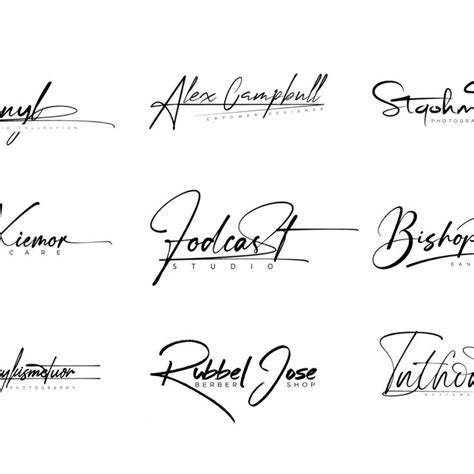 nyl
COLLECTION
Alex Campbull
EMPOWER DESIGNER
PHOTOGRA
Kiemor
CARE
Fodcast
STUDIO
Bishop
BAN
PHOTOGRAPHY
Rubbel Jose
BERBER SHOP